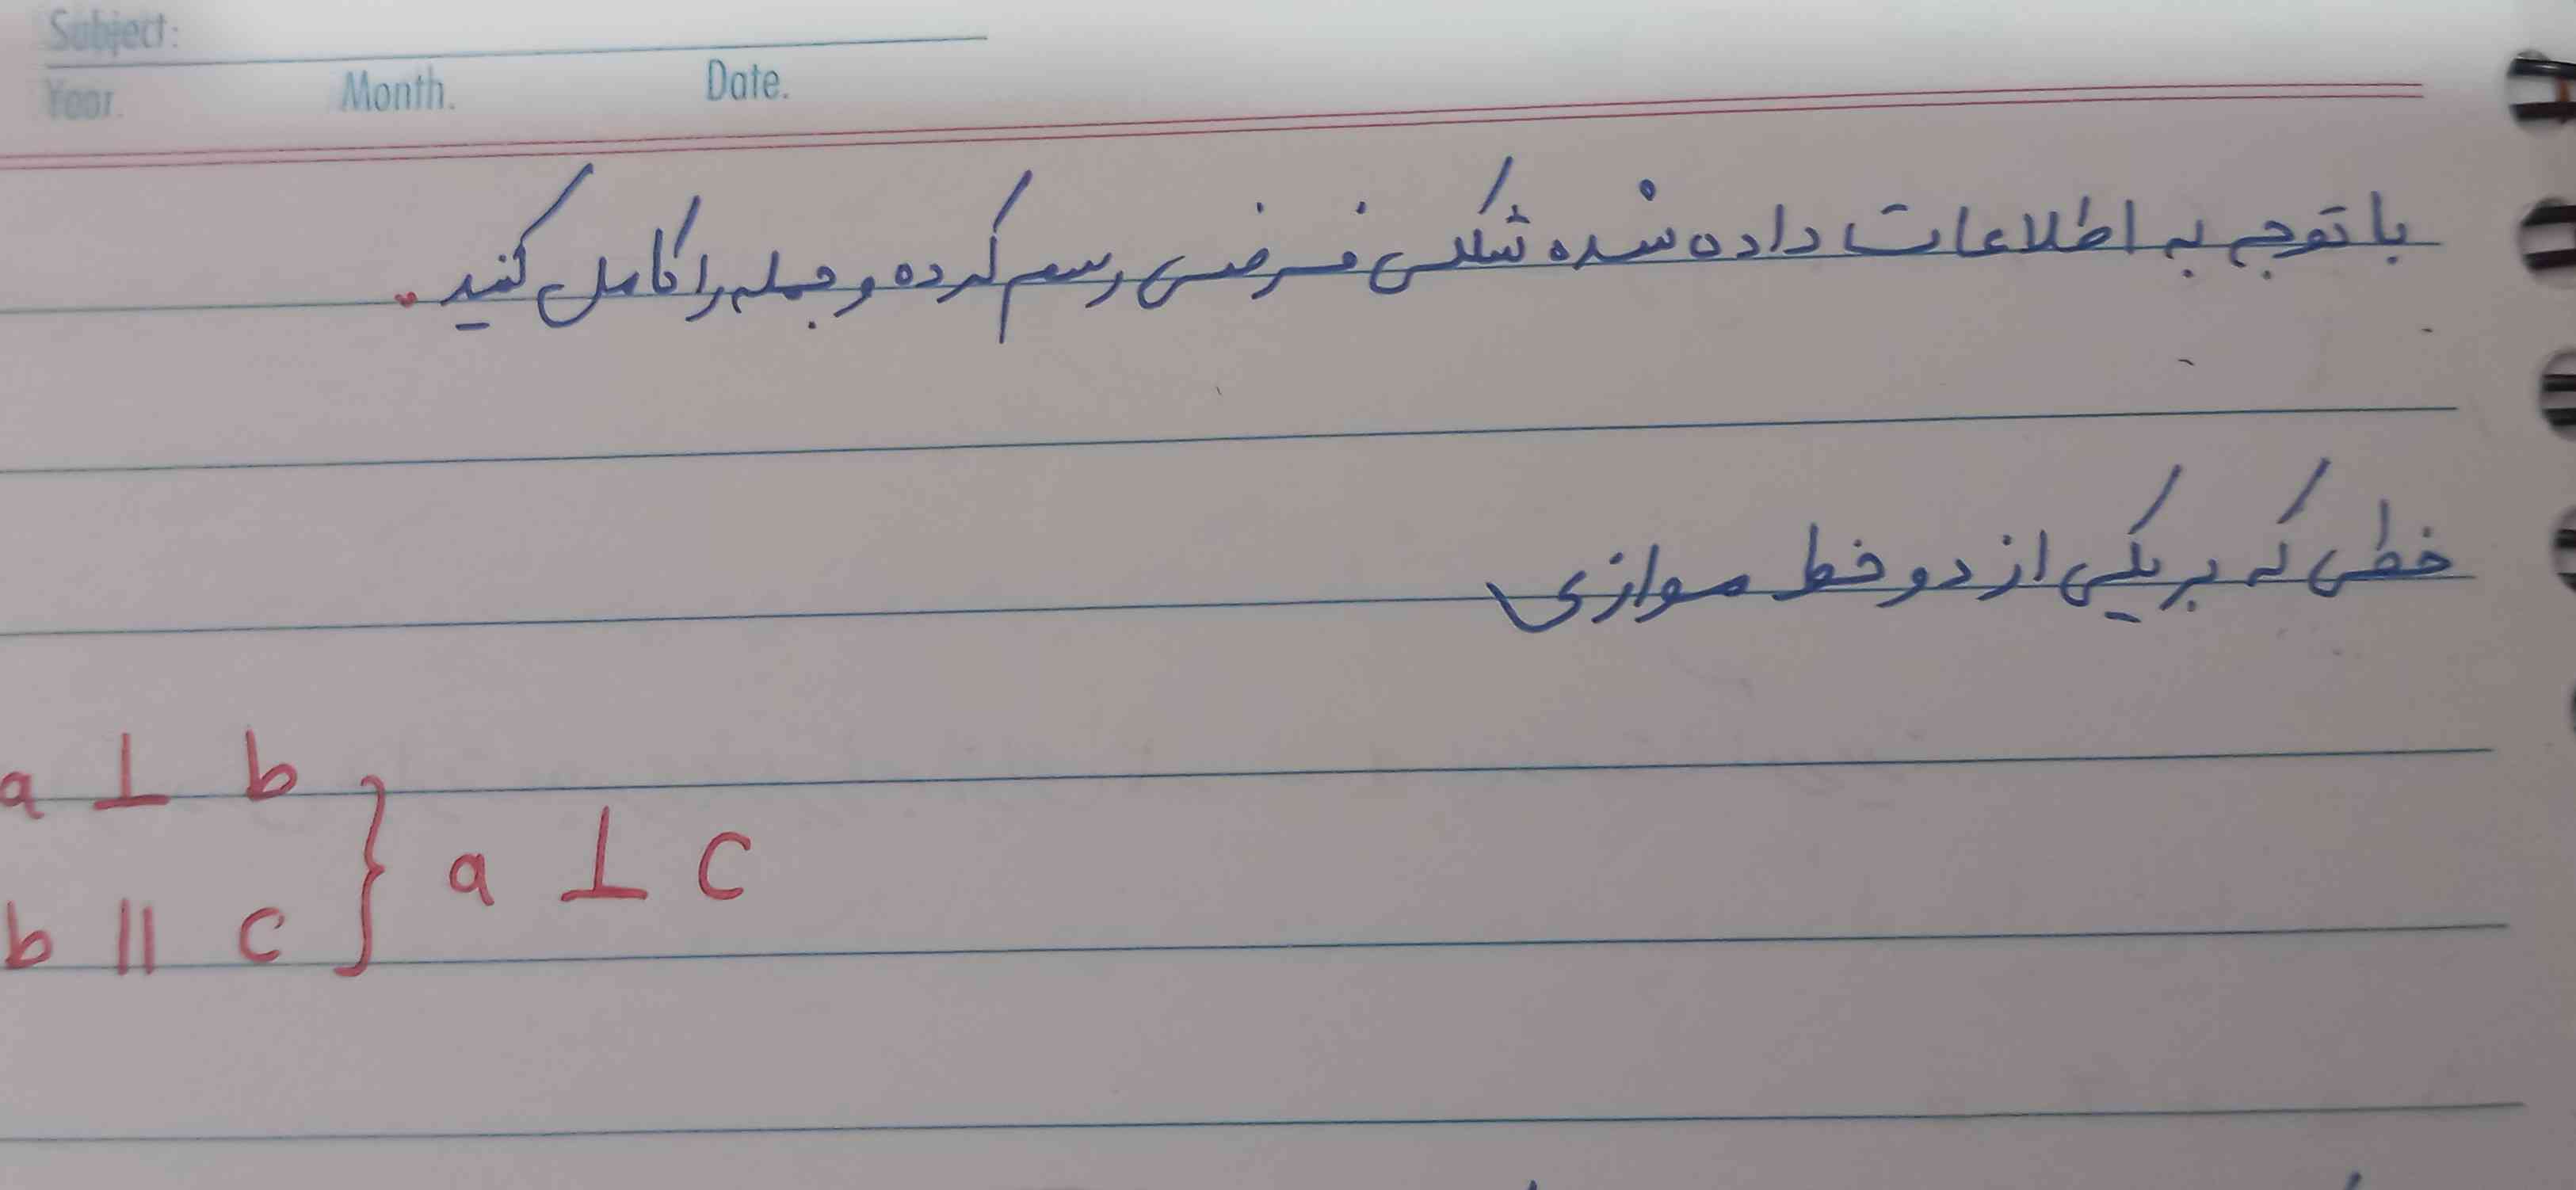 Subject:
Year. Month. Date.
با توجه به اطلاعات داده شده شکلی فرضی رسم کرده و جمله را کامل کنید.
خطی که بر یکی از دو خط موازی
a ⊥ b
b || c } a ⊥ c